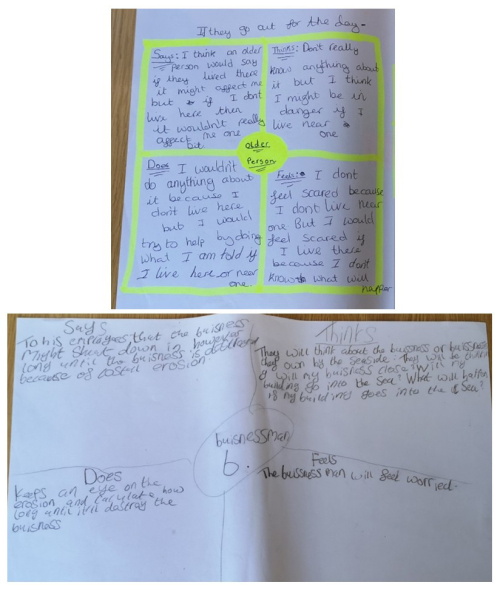 If they go out for the day-
Says: I think an older
person would say
if they lived there
it might affect me
but if I dont
live here then
it wouldn't really
affect me one
bit
Thinks: Don't really
know anything about
it but I think
I might be in
danger if I
live near
one
older
Person
Does I wouldn't
do anything about
it because I
don't live here
but I would
try to help by doing
what I am told if
I live here or near
one
Feels: I dont
feel scared because
I dont live near
one But I would
feel scared if
I live there
because I don't
know what will
happen
Says
To his employees that the buisness
might shut down in however
long until the buisness is
because of coastal erosion
Thinks
They will think about the bussness or bussnesses
they own by the seaside. They will be
if will my buisness close? Will my
building go into the sea? What will happen
if my building goes into the sea?
buisnessman
6.
Does
Keeps an eye on the
erosion and calculate how
long until it'll destroy the
buisness
Feels
The buissness man will feel worried.